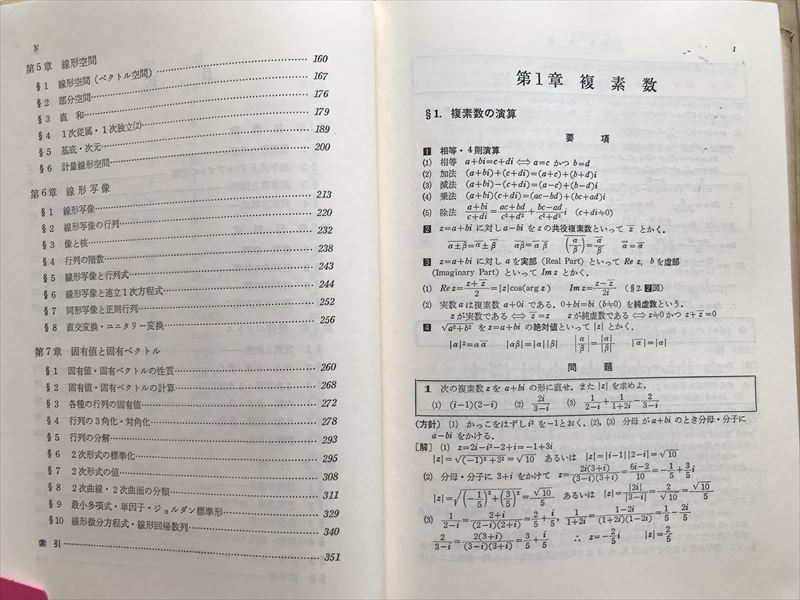 Ⅳ
第5章 線形空間 160
§1 線形空間（ベクトル空間） 167
§2 部分空間 176
§3 直 和 179
§4 1次従属・1次独立(2) 189
§5 基底・次元 200
§6 計量線形空間
第6章 線形写像 213
§1 線形写像 220
§2 線形写像の行列 232
§3 像と核 238
§4 行列の階数 243
§5 線形写像と行列式 244
§6 線形写像と連立1次方程式 252
§7 同形写像と正則行列 256
§8 直交変換・ユニタリー変換
第7章 固有値と固有ベクトル
§1 固有値・固有ベクトルの性質 260
§2 固有値・固有ベクトルの計算 268
§3 各種の行列の固有値 272
§4 行列の3角化・対角化 278
§5 行列の分解 293
§6 2次形式の標準化 295
§7 2次形式の値 308
§8 2次曲線・2次曲面の分類 311
§9 最小多項式・単因子・ジョルダン標準形 329
§10 線形微分方程式・線形回帰数列 340
索 引 351
1
第1章 複素数
§1. 複素数の演算
要 項
1 相等・4則演算
(1) 相等 a+bi=c+di ⟺ a=c かつ b=d
(2) 加法 (a+bi)+(c+di)=(a+c)+(b+d)i
(3) 減法 (a+bi)-(c+di)=(a-c)+(b-d)i
(4) 乗法 (a+bi)(c+di)=(ac-bd)+(bc+ad)i
(5) 除法 (a+bi)/(c+di)=(ac+bd)/(c²+d²)+(bc-ad)/(c²+d²)i (c+di≠0)
2 z=a+bi に対し a-bi を z の共役複素数といって z̅ とかく.
α±β̅=α̅±β̅ αβ̅=α̅ β̅ (α/β)̅=α̅/β̅ α̿=α
3 z=a+bi に対し a を実部 (Real Part) といって Re z, b を虚部
(Imaginary Part) といって Im z とかく.
(1) Re z=(z+z̅)/2=|z|cos(arg z) Im z=(z-z̅)/2i (§2. 2図)
(2) 実数 a は複素数 a+0i である. 0+bi=bi (b≠0) を純虚数という.
z が実数である ⟺ z̅=z z が純虚数である ⟺ z≠0 かつ z+z̅=0
4 √(a²+b²) を z=a+bi の絶対値といって |z| とかく.
|α|²=αα̅ |αβ|=|α||β| |α/β|=|α|/|β| |α̅|=|α|
問 題
1 次の複素数 z を a+bi の形に直せ. また |z| を求めよ.
(1) (i-1)(2-i) (2) 2i/(3-i) (3) 1/(2-i)+1/(1+2i)-2/(3-i)
(方針) (1) かっこをはずし i² を -1 とおく. (2), (3) 分母が a+bi のとき分母・分子に
a-bi をかける.
[解] (1) z=2i-i²-2+i=-1+3i
|z|=√((-1)²+3²)=√10 あるいは |z|=|i-1||2-i|=√10
(2) 分母・分子に 3+i をかけて z=2i(3+i)/((3-i)(3+i))=(6i-2)/10=-1/5+3/5i
|z|=√((-1/5)²+(3/5)²)=√10/5 あるいは |z|=|2i|/|3-i|=2/√10=√10/5
(3) 1/(2-i)=(2+i)/((2-i)(2+i))=2/5+i/5, 1/(1+2i)=(1-2i)/((1+2i)(1-2i))=1/5-2i/5
2/(3-i)=2(3+i)/((3-i)(3+i))=3/5+i/5 ∴ z=-2/5i |z|=2/5